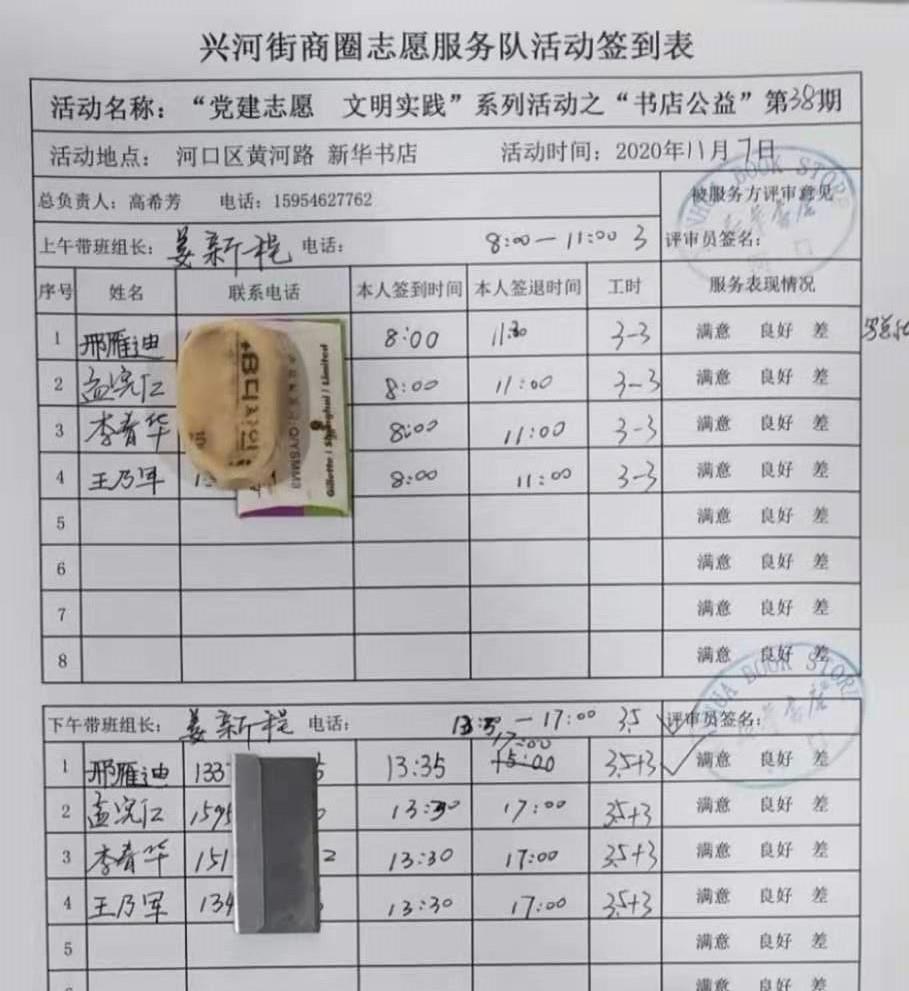 兴河街商圈志愿服务队活动签到表
活动名称：“党建志愿 文明实践”系列活动之“书店公益”第38期
活动地点： 河口区黄河路 新华书店 活动时间：2020年11月7日
总负责人：高希芳 电话：15954627762 被服务方评审意见
上午带班组长：姜新程 电话： 8:00—11:00 3 评审员签名：
序号 姓名 联系电话 本人签到时间 本人签退时间 工时 服务表现情况
1 邢雁迪 8:00 11:30 3-3 满意 良好 差
2 孟浣仁 8:00 11:00 3-3 满意 良好 差
3 李春华 8:00 11:00 3-3 满意 良好 差
4 王乃军 8:00 11:00 3-3 满意 良好 差
5 满意 良好 差
6 满意 良好 差
7 满意 良好 差
8 满意 良好 差
下午带班组长：姜新程 电话： —17:00 3.5 评审员签名：
1 邢雁迪 133 13:35 17:00 15:00 3.5+3 满意 良好 差
2 孟浣仁 1595 13:30 17:00 3.5+3 满意 良好 差
3 李春华 151 2 13:30 17:00 3.5+3 满意 良好 差
4 王乃军 134 13:30 17:00 3.5+3 满意 良好 差
5 满意 良好 差
满意 良好 差
HUA BOOK STORE
HUA BOOK STORE
Gillette / Shanghai / Limited